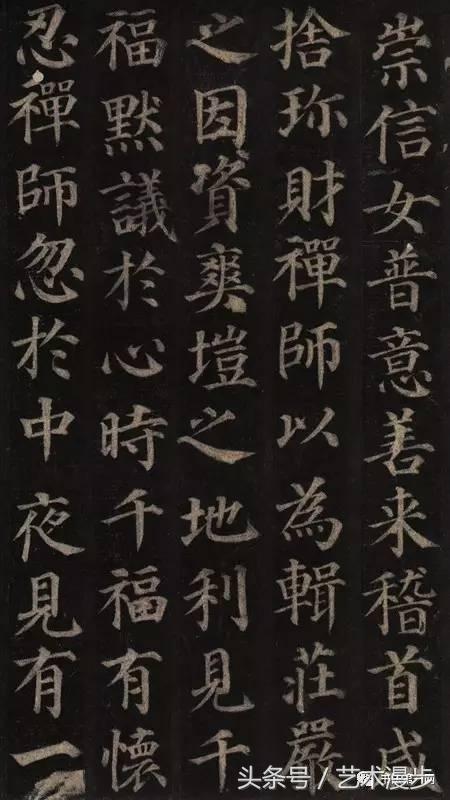 崇信女普意善来稽首咸
捨珎財禪師以為輯莊嚴
之因資爽塏之地利見千
福默議於心時千福有懷
忍禪師忽於中夜見有一
头条号/艺术漫步